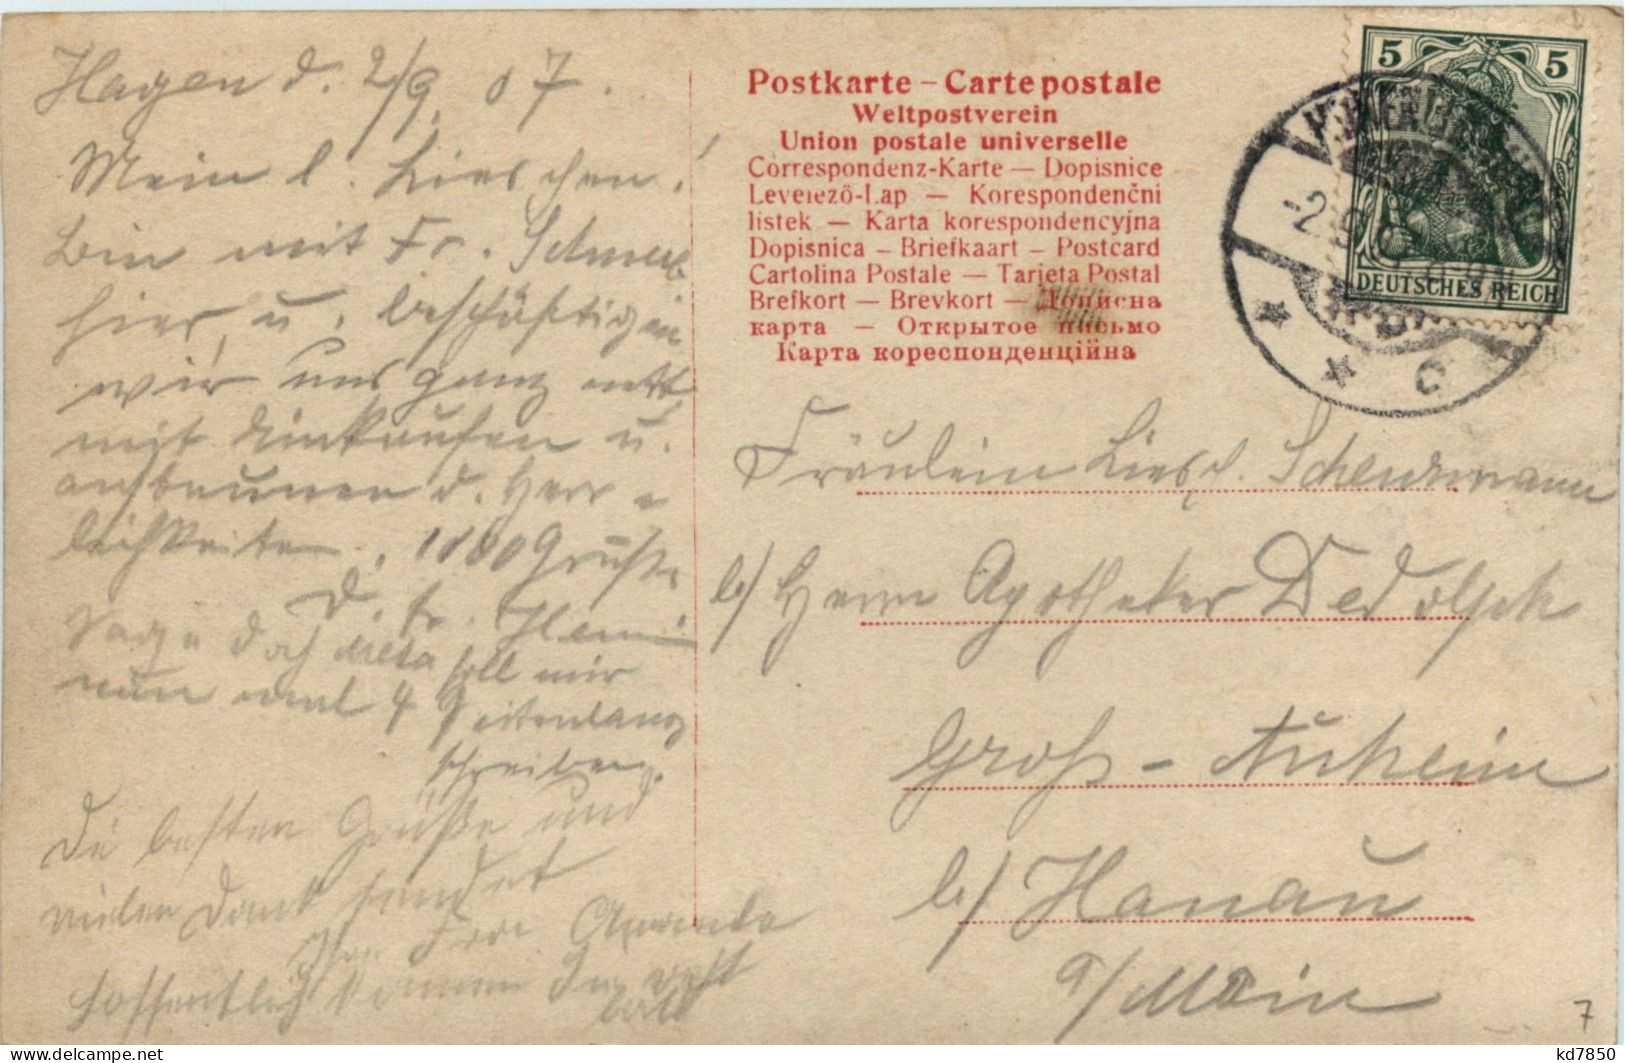 Hagen d. 2/9. 07.
Mein l. Lieschen!
Bin mit Fr.
hier u. beschäftigen
wir uns ganz nett
mit Einkaufen u.
d. Herr
lichkeiten. 1000 Grüße
D. tr.
Sage doch soll mir
nun mal 4 Seitenlang
schreiben.
Die besten Grüße und
vielen Dank sendet
Ihre Frau
hoffentlich kommen Sie
bald
Postkarte – Carte postale
Weltpostverein
Union postale universelle
Correspondenz-Karte — Dopisnice
Levelező-Lap — Korespondenčni
listek — Karta korespondencyjna
Dopisnica — Briefkaart — Postcard
Cartolina Postale — Tarjeta Postal
Brefkort — Brevkort — Дописна
карта — Открытое письмо
Карта кореспонденційна
5 5
DEUTSCHES REICH
-2.9
C
Fräulein Liesch. Scheurmann
b/ Herrn Apotheker
Groß-Auheim
b/ Hanau
a/Main
7
kd7850